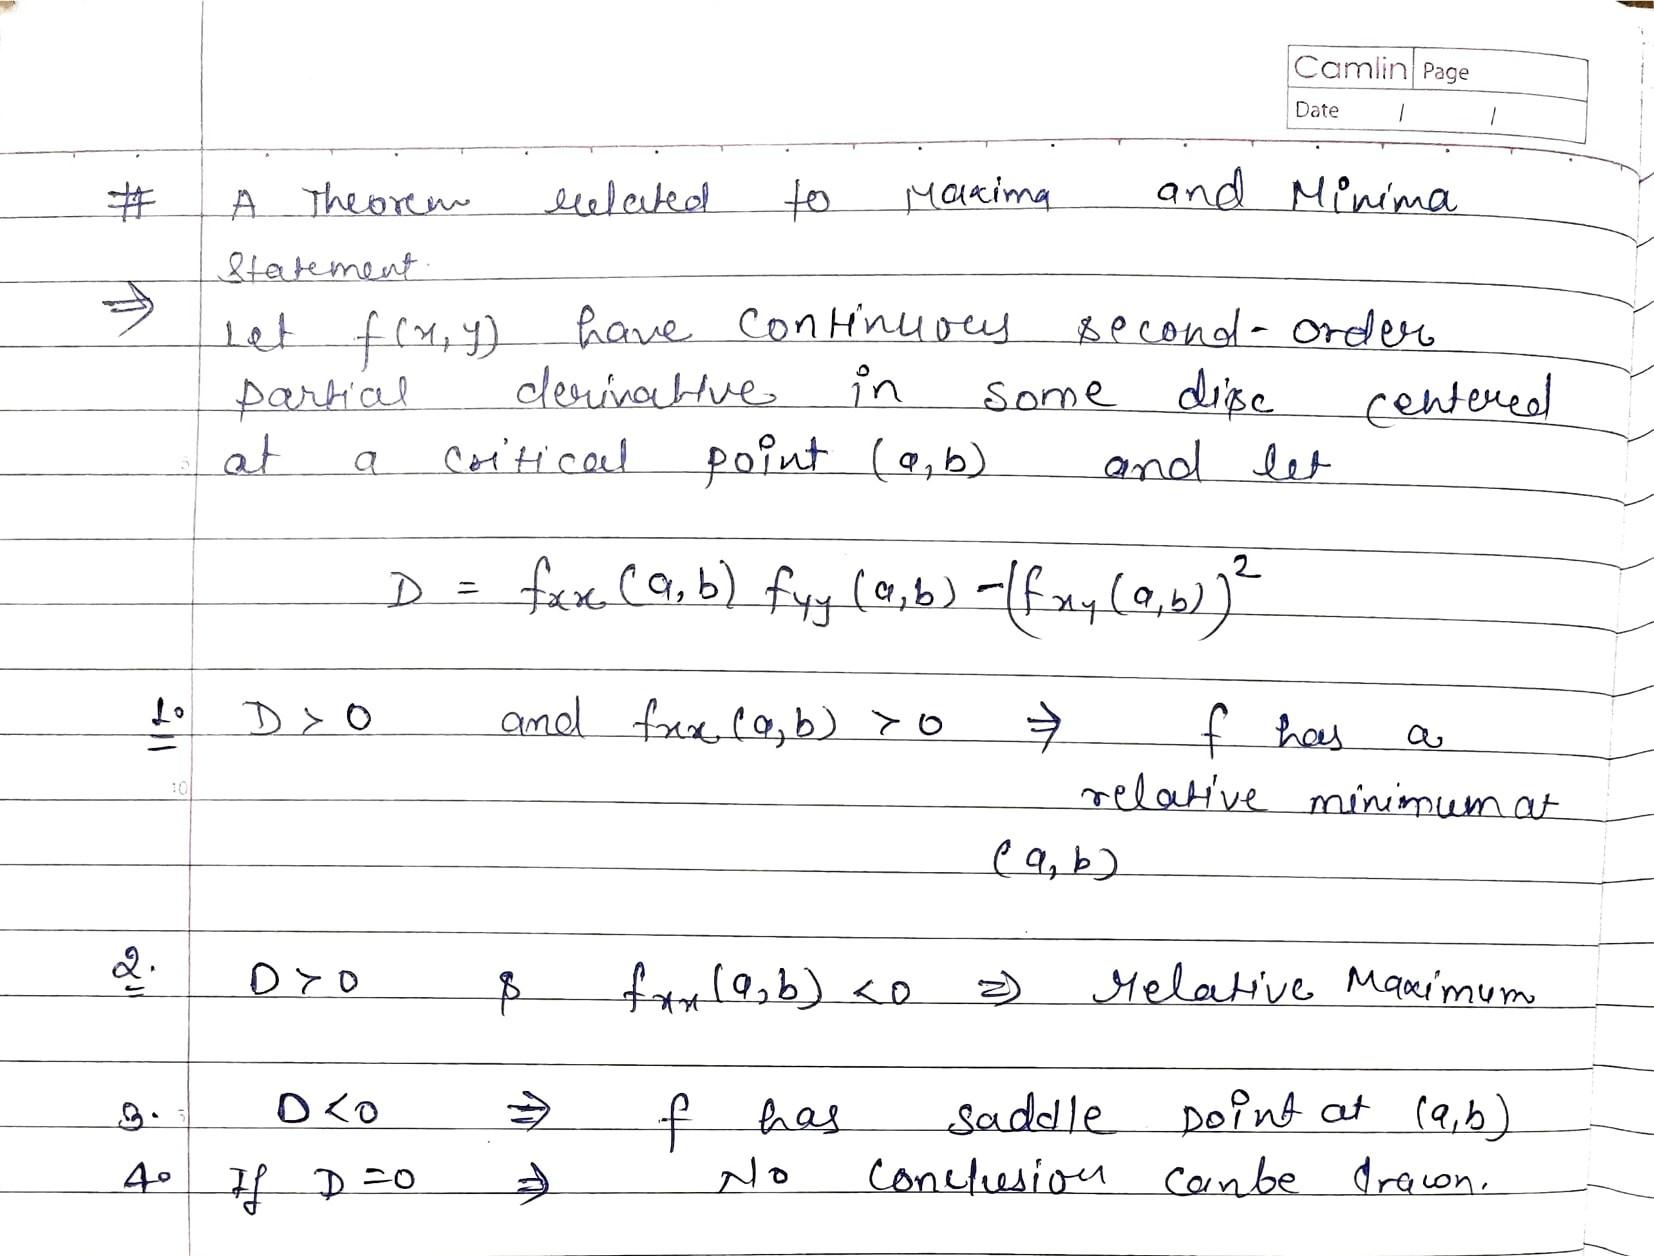 Camlin Page
Date / /
# A Theorem related to Maxima and Minima
Statement.
⇒ Let f(x, y) have continuous second-order
partial derivative in some disc centered
at a critical point (a, b) and let
D = fxx (a, b) fyy (a, b) - (fxy (a, b))²
1. D > 0 and fxx (a, b) > 0 ⇒ f has a
10 relative minimum at
(a, b)
2. D > 0 & fxx (a, b) < 0 ⇒ relative Maximum
3. D < 0 ⇒ f has saddle point at (a, b)
4. If D = 0 ⇒ No conclusion can be drawn.